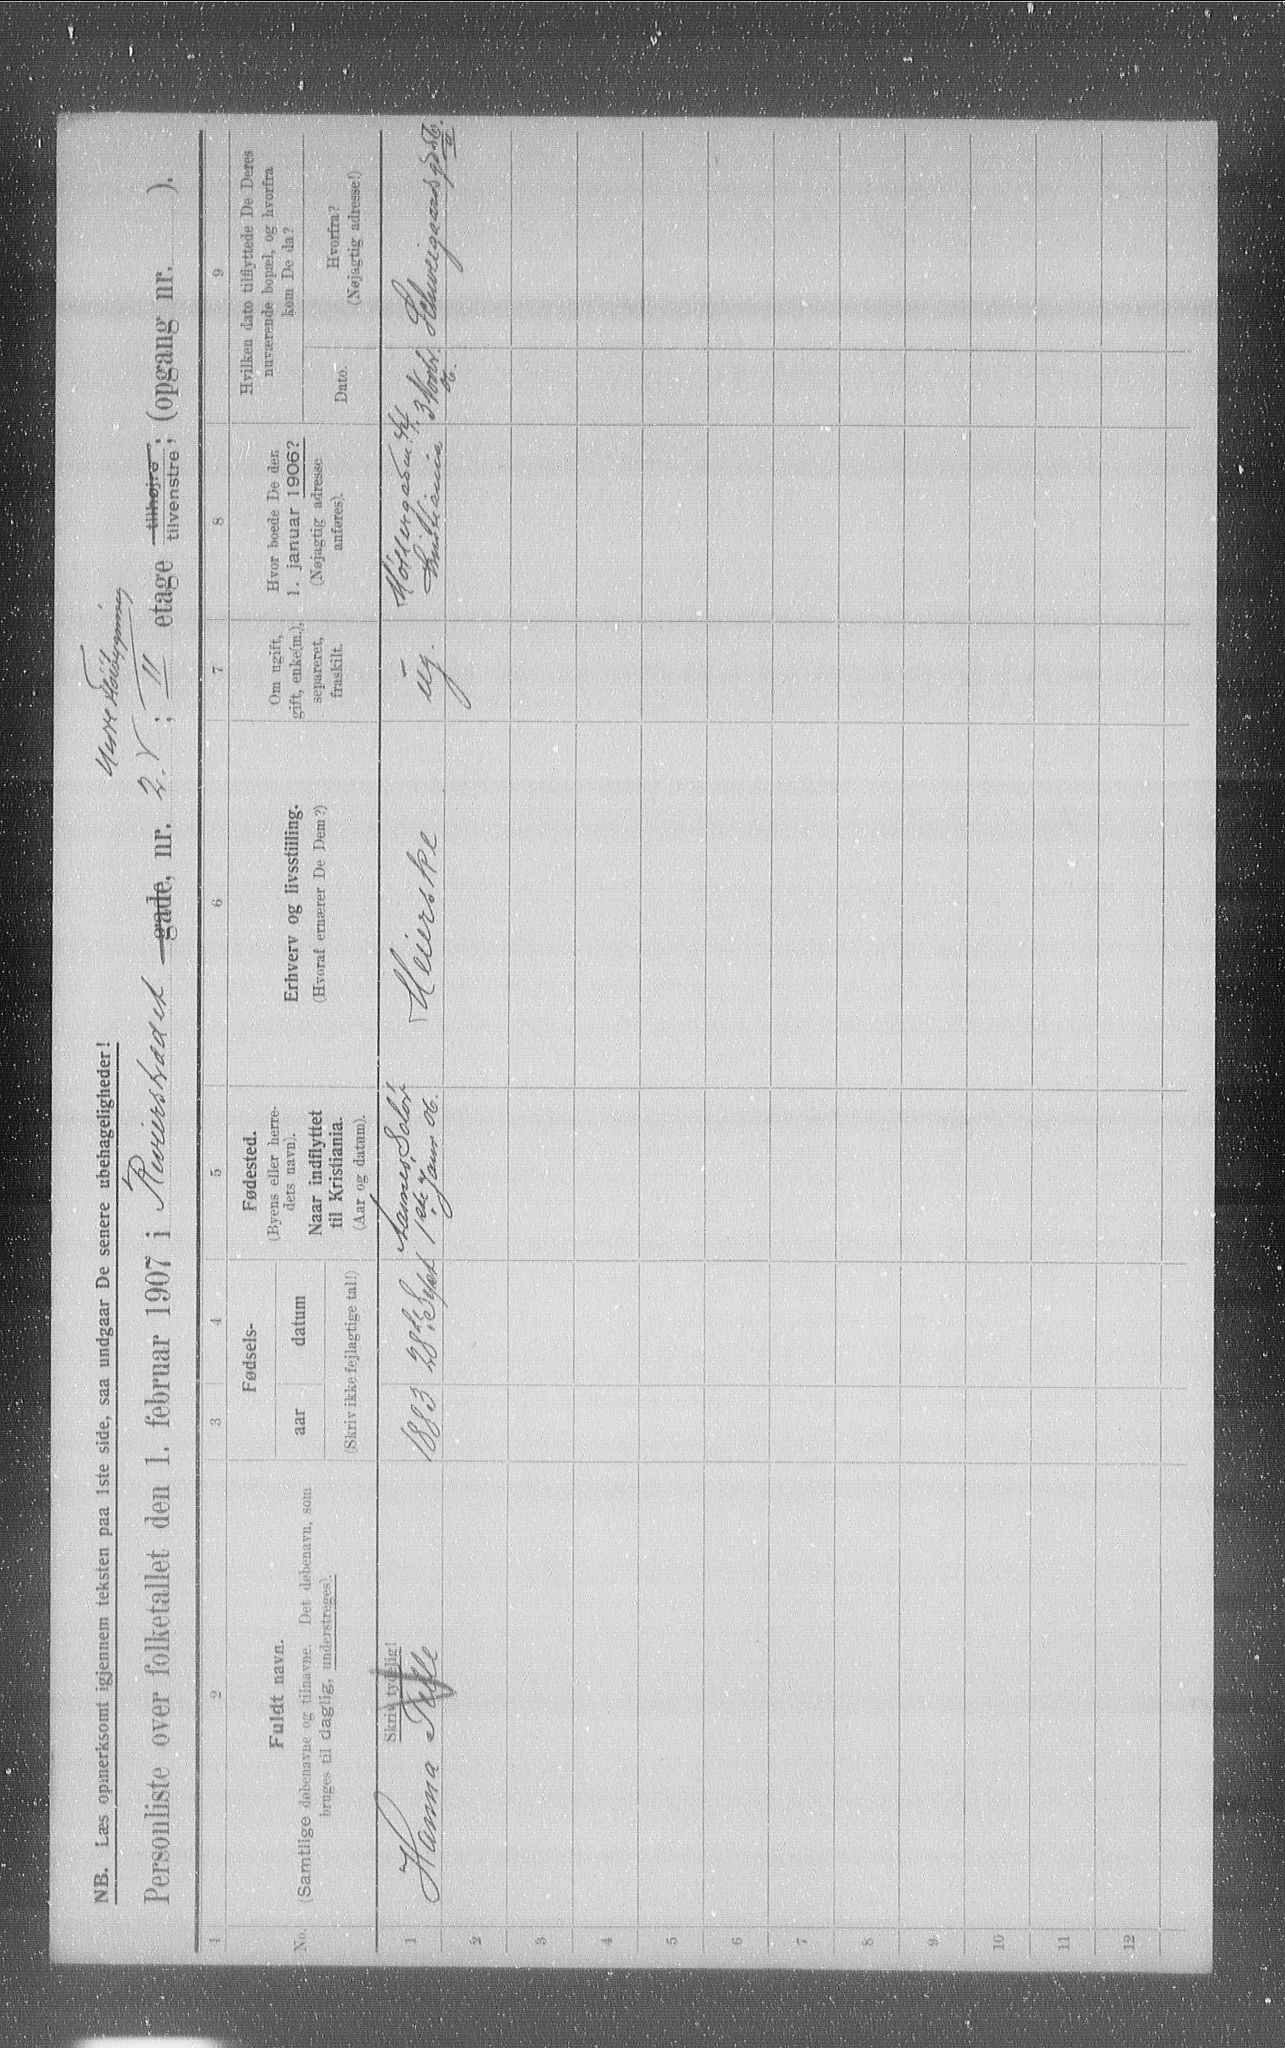 NB. Læs opmerksomt igjennem teksten paa 1ste side, saa undgaar De senere ubehageligheder!
Personliste over folketallet den 1. februar 1907 i Revierstradet gade, nr. 2. V; II etage tilhøjre tilvenstre; (opgang nr. ).
1 2 3 4 5 6 7 8 9
No.
Fuldt navn.
(Samtlige døbenavne og tilnavne. Det døbenavn, som
bruges til daglig, understreges).
Fødsels-
aar datum
(Skriv ikke fejlagtige tal!)
Fødested.
(Byens eller herre-
dets navn).
Naar indflyttet
til Kristiania.
(Aar og datum).
Erhverv og livsstilling.
(Hvoraf ernærer De Dem?)
Om ugift,
gift, enke(m.),
separeret,
fraskilt.
Hvor boede De den
1. januar 1906?
(Nøjagtig adresse
anføres).
Hvilken dato tilflyttede De Deres
nuværende bopæl, og hvorfra
kom De da?
Dato.
Hvorfra?
(Nøjagtig adresse!)
Skriv tydelig!
1 Hanna
1883
28de Septbr
Aasnes, Solør
1ste Janr 06.
Meierske
ug.
Møllergaden
Kristiania
3 Novbr.
06.
Schweigaardsgd
2
3
4
5
6
7
8
9
10
11
12